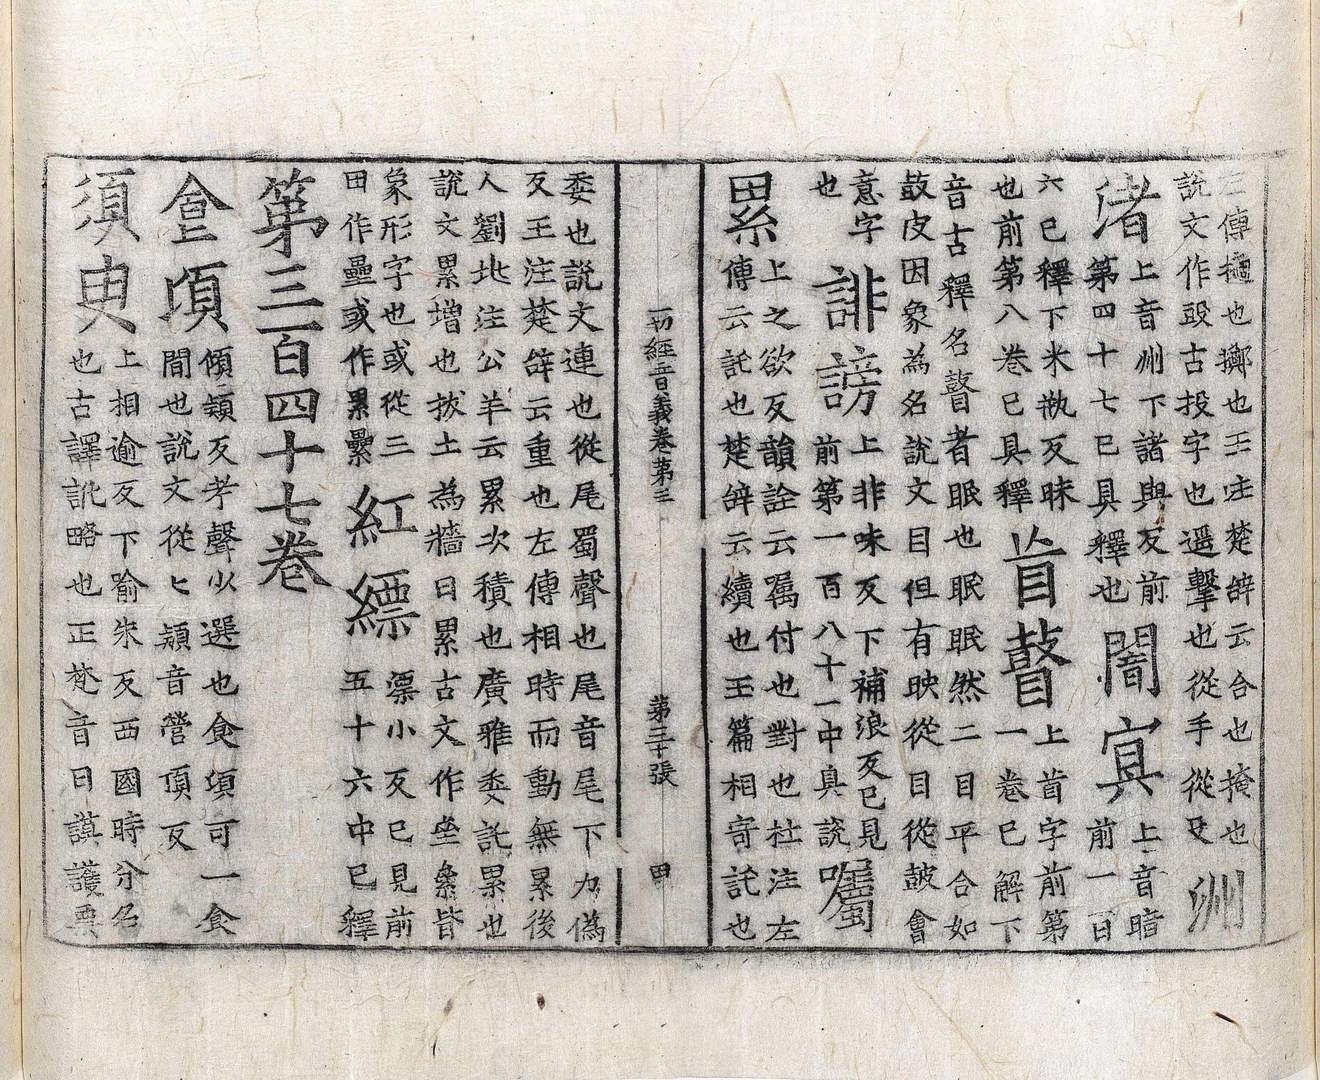 左傳擿也擲也王注楚辭云合也掩也說文作殶古投字也遥擊也從手從殳洲
渚上音州下諸與反前第四十七巳具釋也闇冥上音暗前一百
六巳釋下米執反昧也前第八卷巳具釋盲瞽上首字前第一卷巳解下
音古釋名瞽者眠也眠眠然二目平合如鼓皮因象為名說文目但有映從目從皷會
意字也誹謗上非味反下補浪反已見前第一百八十一中具說囑
累上之欲反韻詮云屬付也對也杜注左傳云託也楚辭云續也玉篇相寄託也
一切經音義卷第三 第三十張 田
委也說文連也從尾蜀聲也尾音尾下力偽反王注楚辭云重也左傳相時而動無累後
人劉兆注公羊云累次積也廣雅委託累也說文累增也拔土為牆曰累古文作垒絫皆
象形字也或從三田作壘或作累纍紅縹漂小反已見前五十六中已釋
第三百四十七卷
食頃傾頴反考聲少選也食頃可一食間也說文從匕頴音營頃反
須臾上相逾反下腧朱反西國時分名也古譯訛略也正梵音曰謨護栗